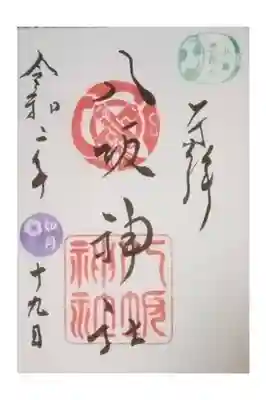 奉拝
八坂神社
令和二年
如月
十九日
八坂
神社